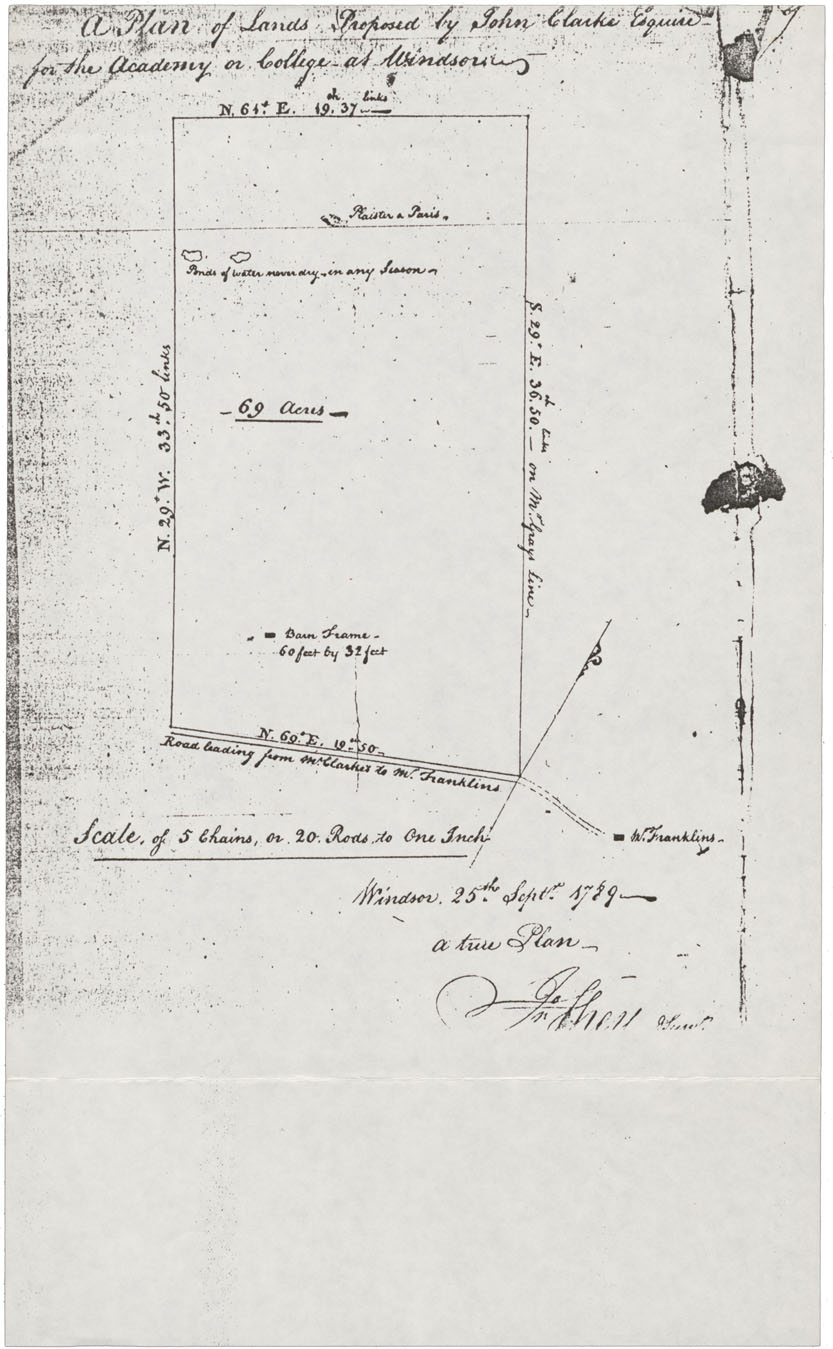 A Plan of Lands Proposed by John Clarke Esquire
for the Academy or College at Windsor
N. 61.d E. 19.ch 37 links
Plaister a Paris.
Ponds of water never dry in any Season
69 Acres
N. 29.d W. 33.ch 50 links
S. 29.d E. 36.ch 50 links on Mr. Grays line
Barn Frame
60 feet by 32 feet
N. 69.d E. 19.ch 50
Road leading from Mr. Clarkes to Mr. Franklins
Scale, of 5 Chains, or 20 Rods, to One Inch
Mr. Franklins
Windsor. 25.th Septr. 1789
a true Plan
Surv.r